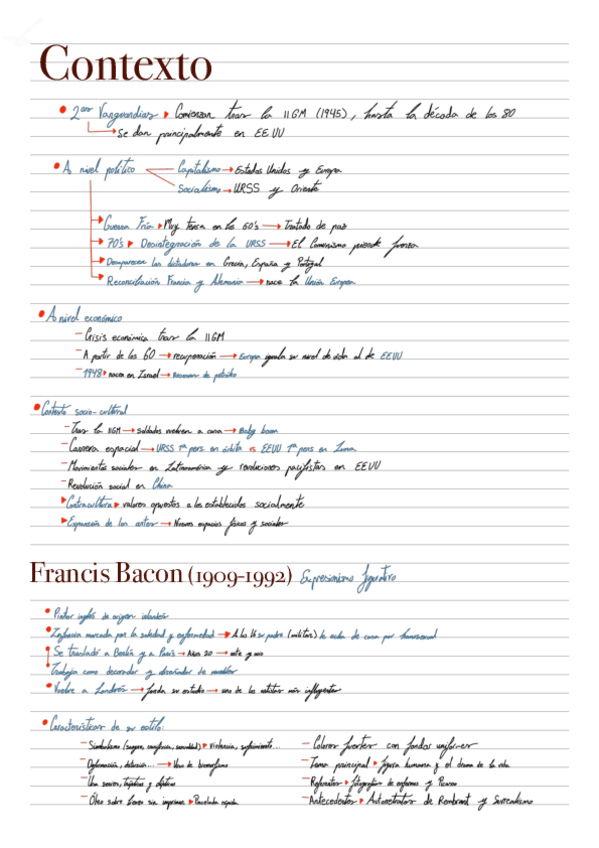 Contexto
• 2as Vanguardias ▸ Comienzan tras la IIGM (1945), hasta la década de los 80
→ Se dan principalmente en EEUU
• A nivel político
Capitalismo → Estados Unidos y Europa
Socialismo → URSS y Oriente
Guerra Fría ▸ Muy tensa en los 60's → Tratado de paz
70's ▸ Desintegración de la URSS → El Comunismo pierde fuerza
Desaparecen las dictaduras en Grecia, España y Portugal
Reconciliación Francia y Alemania → nace la Unión Europea
• A nivel económico
- Crisis económica tras la IIGM
- A partir de los 60 → recuperación → Europa iguala su nivel de vida al de EEUU
- 1948 ▸ nace en Israel → de petróleo
• Contexto socio-cultural
- Tras la IIGM → soldados vuelven a casa → Baby boom
- Carrera espacial → URSS 1ª pers en órbita vs EEUU 1ª pers en Luna
- Movimientos sociales en Latinoamérica y revoluciones pacifistas en EEUU
- Revolución social en China
▸ Contracultura ▸ valores opuestos a los establecidos socialmente
▸ Expansión de las artes → Nuevos espacios físicos y sociales
Francis Bacon (1909-1992) Expresionismo figurativo
• Pintor inglés de origen irlandés
• Infancia marcada por la soledad y enfermedad → A los 16 su padre (militar) le echa de casa por homosexual
Se trasladó a Berlín y a París → Años 20 →
Trabaja como decorador y diseñador de muebles
• Vuelve a Londres → funda su estudio → uno de los artistas más influyentes
• Características de su estilo:
- Simbolismo (sangre, sexualidad) ▸ Violencia, sufrimiento...
- Deformación, → Uso de
-
- Óleo sobre lienzo sin imprimar ▸ Pincelada rápida
- Colores fuertes con fondos uniformes
- Tema principal ▸ figura humana y el drama de la vida
- Referentes ▸ fotografías de enfermos y Picasso
- Antecedentes ▸ Autorretratos de Rembrant y Surrealismo